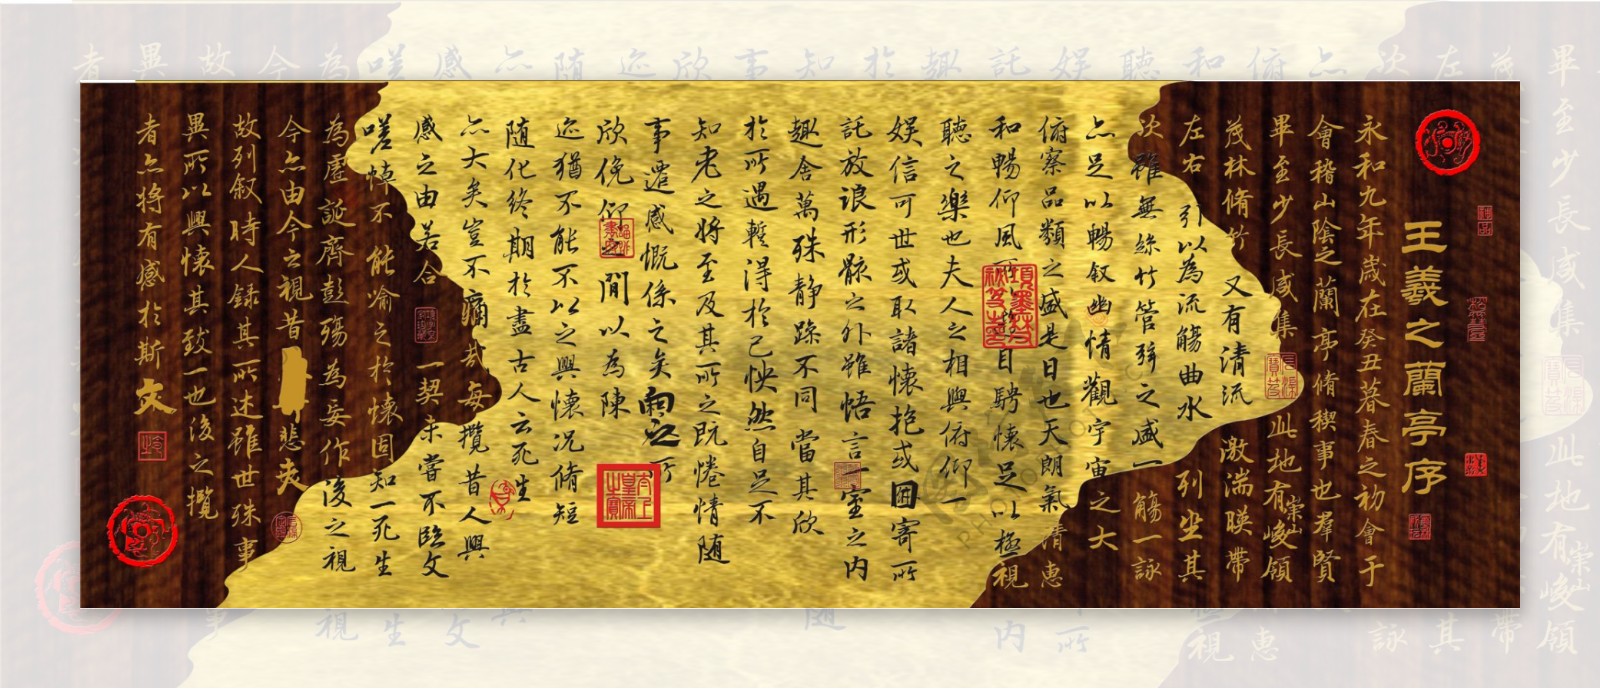 王羲之蘭亭序
永和九年歲在癸丑暮春之初會于
會稽山陰之蘭亭脩稧事也羣賢
畢至少長咸集此地有崇山峻領
茂林脩竹又有清流激湍暎帶
左右引以為流觴曲水列坐其
次雖無絲竹管弦之盛一觴一詠
亦足以暢叙幽情觀宇宙之大
俯察品類之盛是日也天朗氣清惠
和暢仰風所以目騁懷足以極視
聽之樂也夫人之相與俯仰一
娛信可世或取諸懷抱或因寄所
託放浪形骸之外雖悟言一室之內
趣舍萬殊静躁不同當其欣
於所遇輕得於己怏然自足不
知老之將至及其所之既惓情隨
事遷感慨係之矣向之所
欣俛仰之間以為陳
迹猶不能不以之興懷况脩短
隨化終期於盡古人云死生
亦大矣豈不痛哉每攬昔人興
感之由若合一契未嘗不臨文
嗟悼不能喻之於懷固知一死生
為虛誕齊彭殤為妄作後之視
今亦由今之視昔悲夫
故列叙時人錄其所述雖世殊事
異所以興懷其致一也後之攬
者亦將有感於斯文